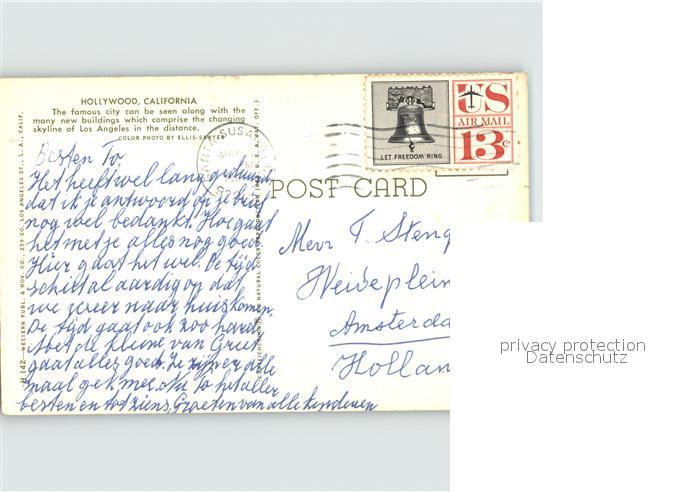 HOLLYWOOD, CALIFORNIA
The famous city can be seen along with the
many new buildings which comprise the changing
skyline of Los Angeles in the distance.
COLOR PHOTO BY ELLIS-SAWYER
Besten To,
Het heeft wel lang geduurd
dat ik je antwoord op je brief
nog wel bedankt. Hoe gaat
het met je alles nog goed
Hier gaat het wel. De tijd
schiet al aardig op dat
we weer naar huis komen.
De tijd gaat ook zoo hard
Met de kleine van Greet
gaat alles goed. Ze zijn er alle
maal gek mee. Nu To het aller
besten en tot ziens, Groeten van alle kinderen
H 142—WESTERN PUBL. & NOV. CO., 259 SO. LOS ANGELES ST., L. A., CALIF.
SANTA SUSANA
MAY
POST CARD
LET FREEDOM RING
US
AIR MAIL
13c
Mevr T. Steng
Weideplein
Amsterda
Hollan
privacy protection
Datenschutz